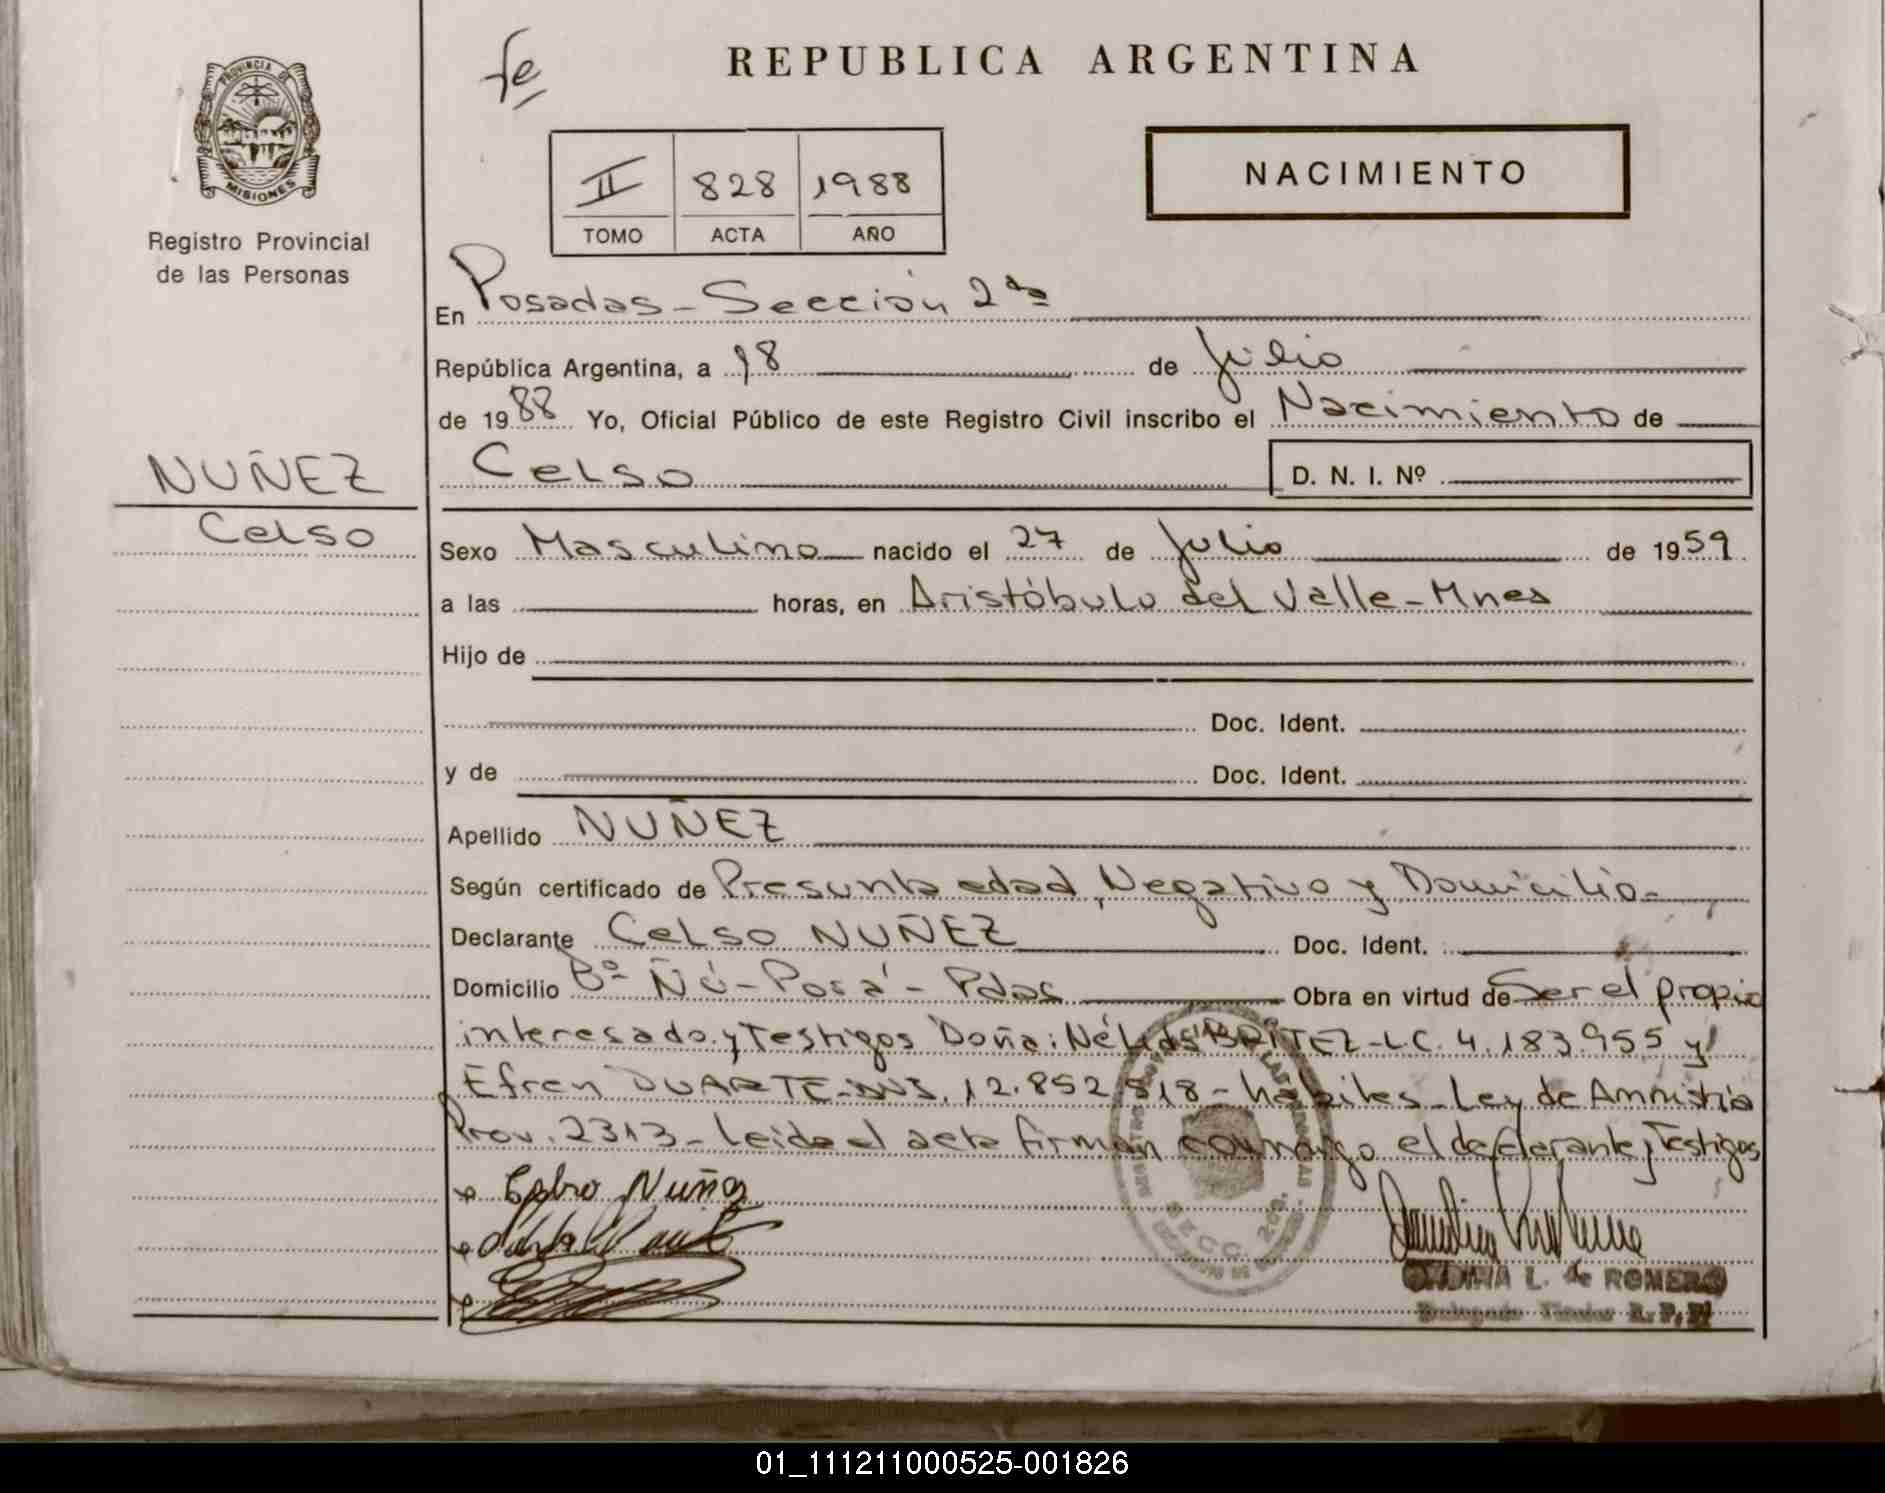 PROVINCIA DE
MISIONES
Registro Provincial
de las Personas
NUÑEZ
Celso
fe
REPUBLICA ARGENTINA
II 828 1988
TOMO ACTA AÑO
NACIMIENTO
En Posadas - Sección 2da
República Argentina, a 18 de Julio
de 1988 Yo, Oficial Público de este Registro Civil inscribo el Nacimiento de
Celso D. N. I. Nº
Sexo Masculino nacido el 27 de Julio de 1959
a las horas, en Aristóbulo del Valle - Mnes
Hijo de
Doc. Ident.
y de Doc. Ident.
Apellido NUÑEZ
Según certificado de Presunta edad, Negativo y Domicilio -
Declarante Celso NUÑEZ Doc. Ident.
Domicilio Bº Ñú - Porá - Pdas Obra en virtud de Ser el propio
interesado y Testigos Doña: Nélida BRITEZ - LC. 4.183955 y
Efren DUARTE - DNI. 12.852 818 - hábiles - Ley de Amnistía
Prov. 2313 - Leída el acta firman conmigo el declarante y Testigos
Nuñez
SECC. 2da.
L. de ROMERO
Titular R. P. P.
01_111211000525-001826